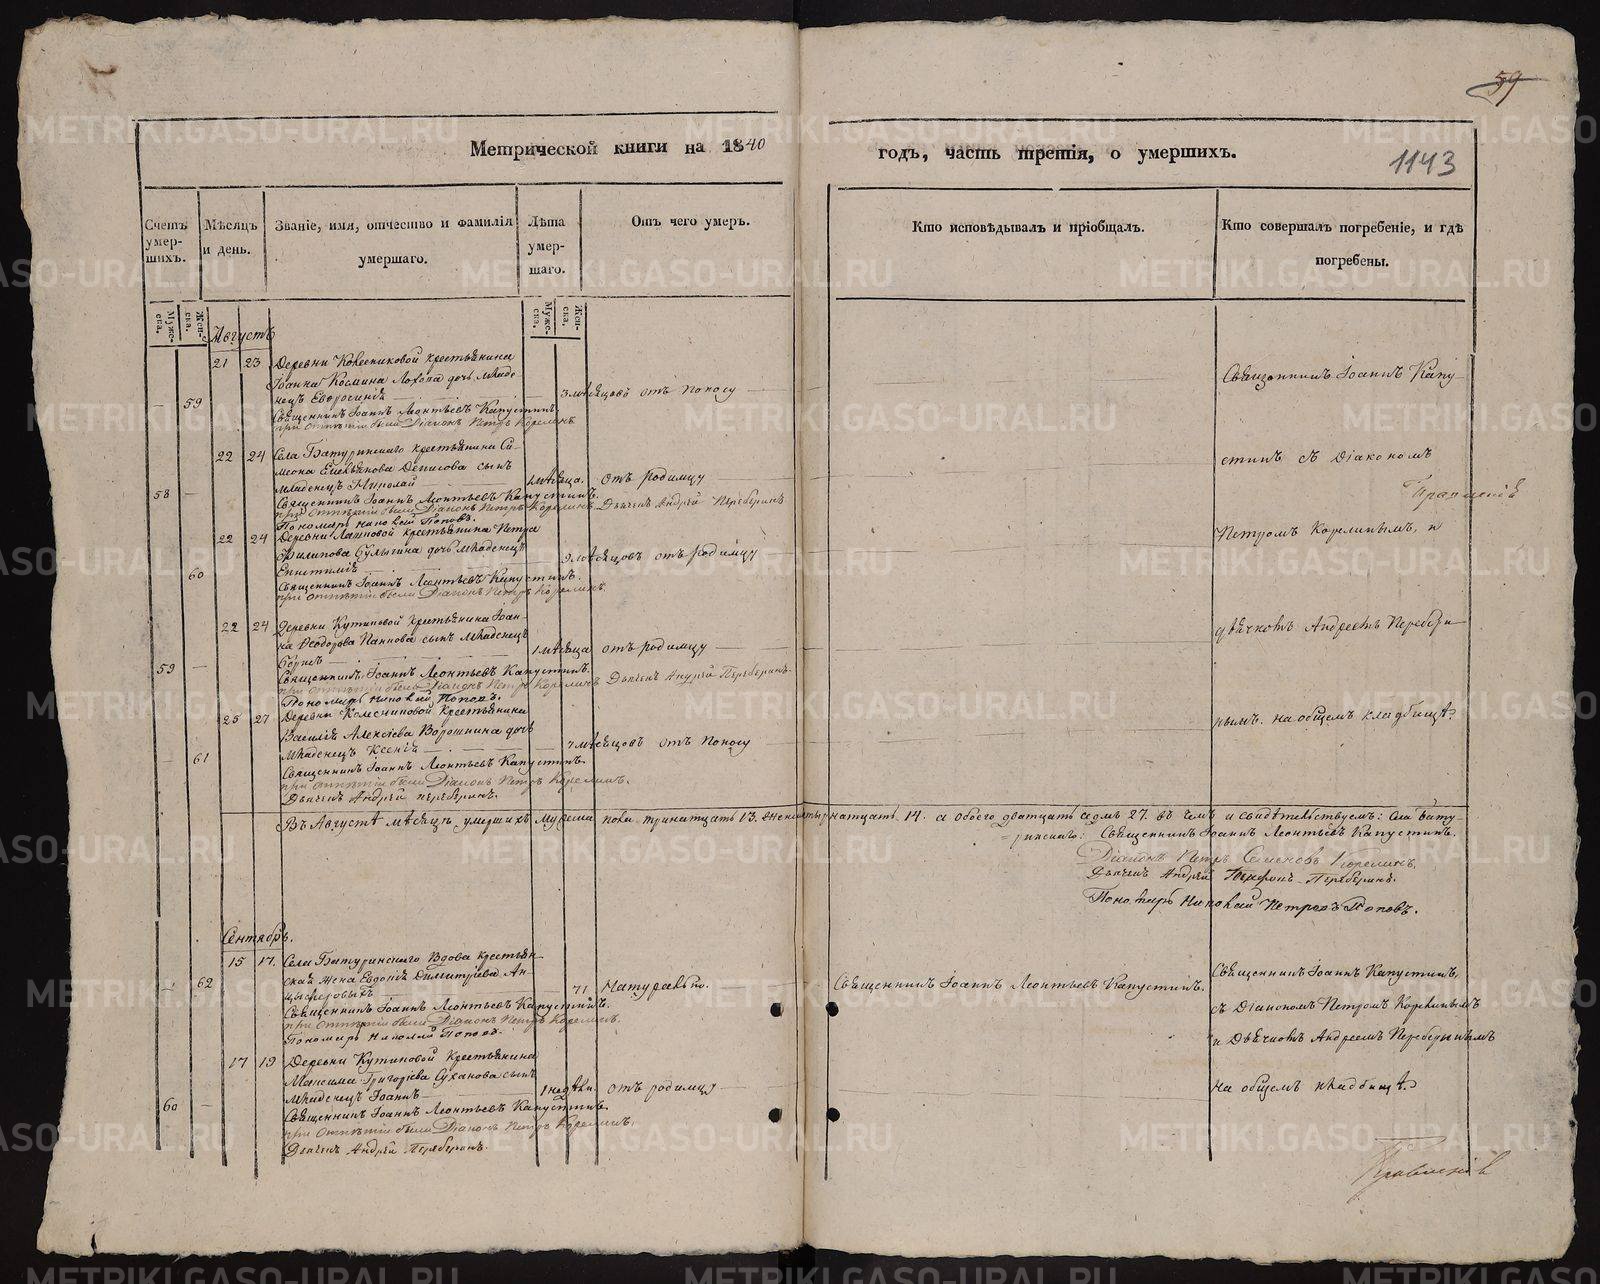 59
Метрической книги на 1840
годъ, часть третія, о умершихъ.
1143
Счетъ умер-шихъ.
Мѣсяцъ и день.
Званіе, имя, отчество и фамилія умершаго.
Лѣта умер-шаго.
Отъ чего умеръ.
Кто исповѣдывалъ и пріобщалъ.
Кто совершалъ погребеніе, и гдѣ погребены.
Муже-ска.
Жен-ска.
Муже-ска.
Жен-ска.
Августъ
21 23 Деревни Колесниковой крестьянина
Іоанна Космина дочь младе-
59 нецъ Евфросинія 3 мѣсяцовъ отъ поносу
Священникъ Іоаннъ Леонтьевъ Капустинъ
при отпѣтіи были Діаконъ Петръ Корелинъ
22 24 Села Батуринскаго крестьянина Си-
меона Емельянова Денисова сынъ
58 младенецъ Николай 1 мѣсяца. отъ родимцу
Священникъ Іоаннъ Леонтьевъ Капустинъ.
при отпѣтіи были Діаконъ Петръ Корелинъ. Дьячекъ Андрей Переберинъ
Пономарь Николай Поповъ.
22 24 Деревни крестьянина Петра
Филипова Сулыгина дочь младенецъ
60 Епистимія 9 мѣсяцовъ отъ родимцу
Священникъ Іоаннъ Леонтьевъ Капустинъ.
при отпѣтіи были Діаконъ Петръ Корелинъ.
22 24 Деревни Кутиковой крестьянина Іоан-
на Ѳеодорова Панкова сынъ младенецъ
59 Борисъ 1 мѣсяца отъ родимцу
Священникъ Іоаннъ Леонтьевъ Капустинъ.
при отпѣтіи были Діаконъ Петръ Корелинъ Дьячекъ Андрей Переберинъ
Пономарь Николай Поповъ.
25 27 Деревни Колесниковой Крестьянина
Василія Алексіева Ворошнина дочь
61 младенецъ Ксенія 7 мѣсяцовъ отъ поносу
Священникъ Іоаннъ Леонтьевъ Капустинъ.
при отпѣтіи были Діаконъ Петръ Корелинъ.
Дьячекъ Андрей Переберинъ.
Священникъ Іоаннъ Капу-
стинъ съ Діакономъ
Петромъ Корелинымъ, и
дьячкомъ Андреемъ Перебери-
нымъ. на общемъ кладбищѣ.
Въ Августѣ мѣсяцѣ умершихъ мужеска пола тринатцать 13. женска четырнатцать 14. а обоего дватцать седмь 27. въ чемъ и свидѣтельствуемъ: села Бату-
ринскаго: Священникъ Іоаннъ Леонтьевъ Капустинъ.
Діаконъ Петръ Семеновъ Корелинъ.
Дьячекъ Андрей Переберинъ.
Пономарь Николай Петровъ Поповъ.
Сентябрь.
15 17. Села Батуринскаго вдова крестьян-
62 ская жена Евдокія Димитріева Ан-
71 Натурально. Священникъ Іоаннъ Леонтьевъ Капустинъ.
Священникъ Іоаннъ Леонтьевъ Капустинъ.
при отпѣтіи были Діаконъ Петръ Корелинъ.
Пономарь Николай Поповъ.
Священникъ Іоаннъ Капустинъ,
съ Діакономъ Петромъ Корелинымъ
и Дьячкомъ Андреемъ Переберинымъ
на общемъ кладбищѣ.
17 19 Деревни Кутиковой Крестьянина
Максима Григоріева Суханова сынъ
60 младенецъ Іоаннъ 1 недѣли. отъ родимцу
Священникъ Іоаннъ Леонтьевъ Капустинъ.
при отпѣтіи были Діаконъ Петръ Корелинъ.
Дьячекъ Андрей Переберинъ.
METRIKI.GASO-URAL.RU